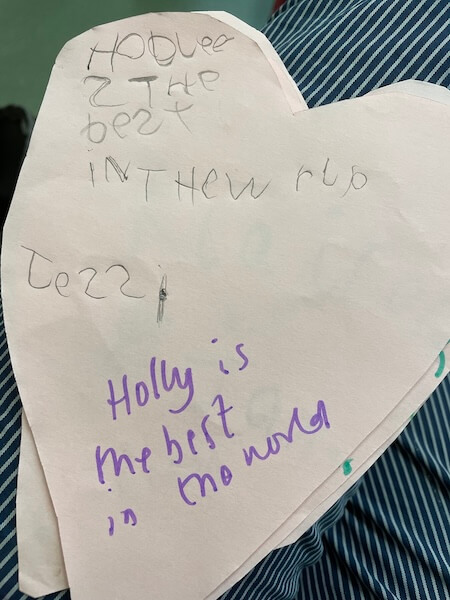 HOOLee
2 THe
best
iN THew rlp
Jessi
Holly is
the best
in the world